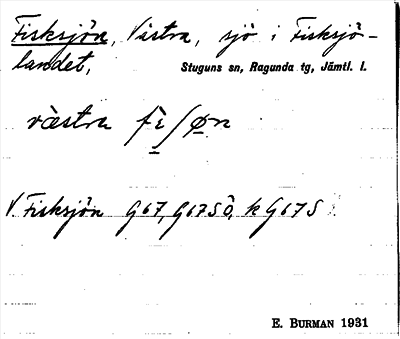 Fisksjön, Västra, sjö i Fisksjö-
landet,
Stuguns sn, Ragunda tg, Jämtl. l.
västra
V. Fisksjön G67, G67SÖ, k G67S
E. BURMAN 1931